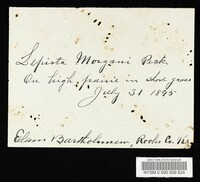 Lepiota Morgani Peck.
On high prairie in short grass
July 31 1895
Elam Bartholomew, Rooks Co. Ks.
NEW YORK STATE MUSEUM
NYSM 0 000 009 624